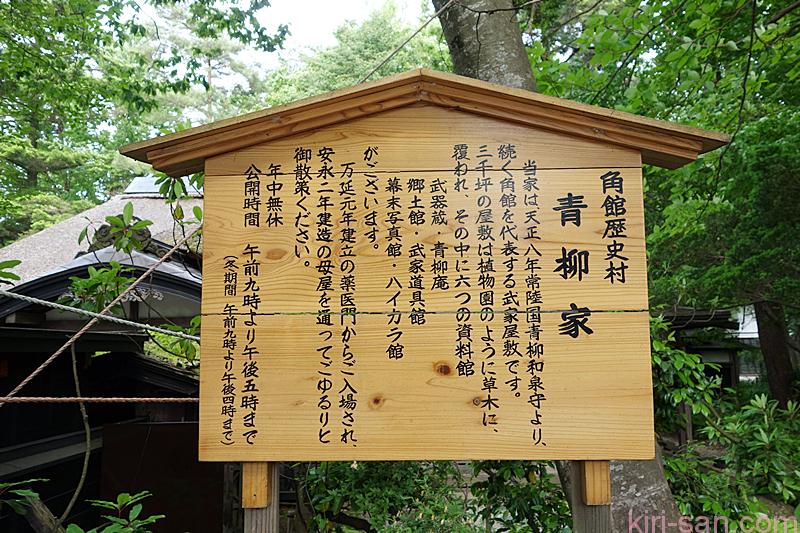 角館歴史村
青柳家
当家は天正八年常陸国青柳和泉守より、
続く角館を代表する武家屋敷です。
三千坪の屋敷は植物園のように草木に、
覆われ、その中に六つの資料館
武器蔵・青柳庵
郷土館・武家道具館
幕末写真館・ハイカラ館
がございます。
万延元年建立の薬医門からご入場され、
安永二年建造の母屋を通ってごゆるりと
御散策ください。
年中無休
公開時間 午前九時より午後五時まで
(冬期間 午前九時より午後四時まで)
kiri-san.com